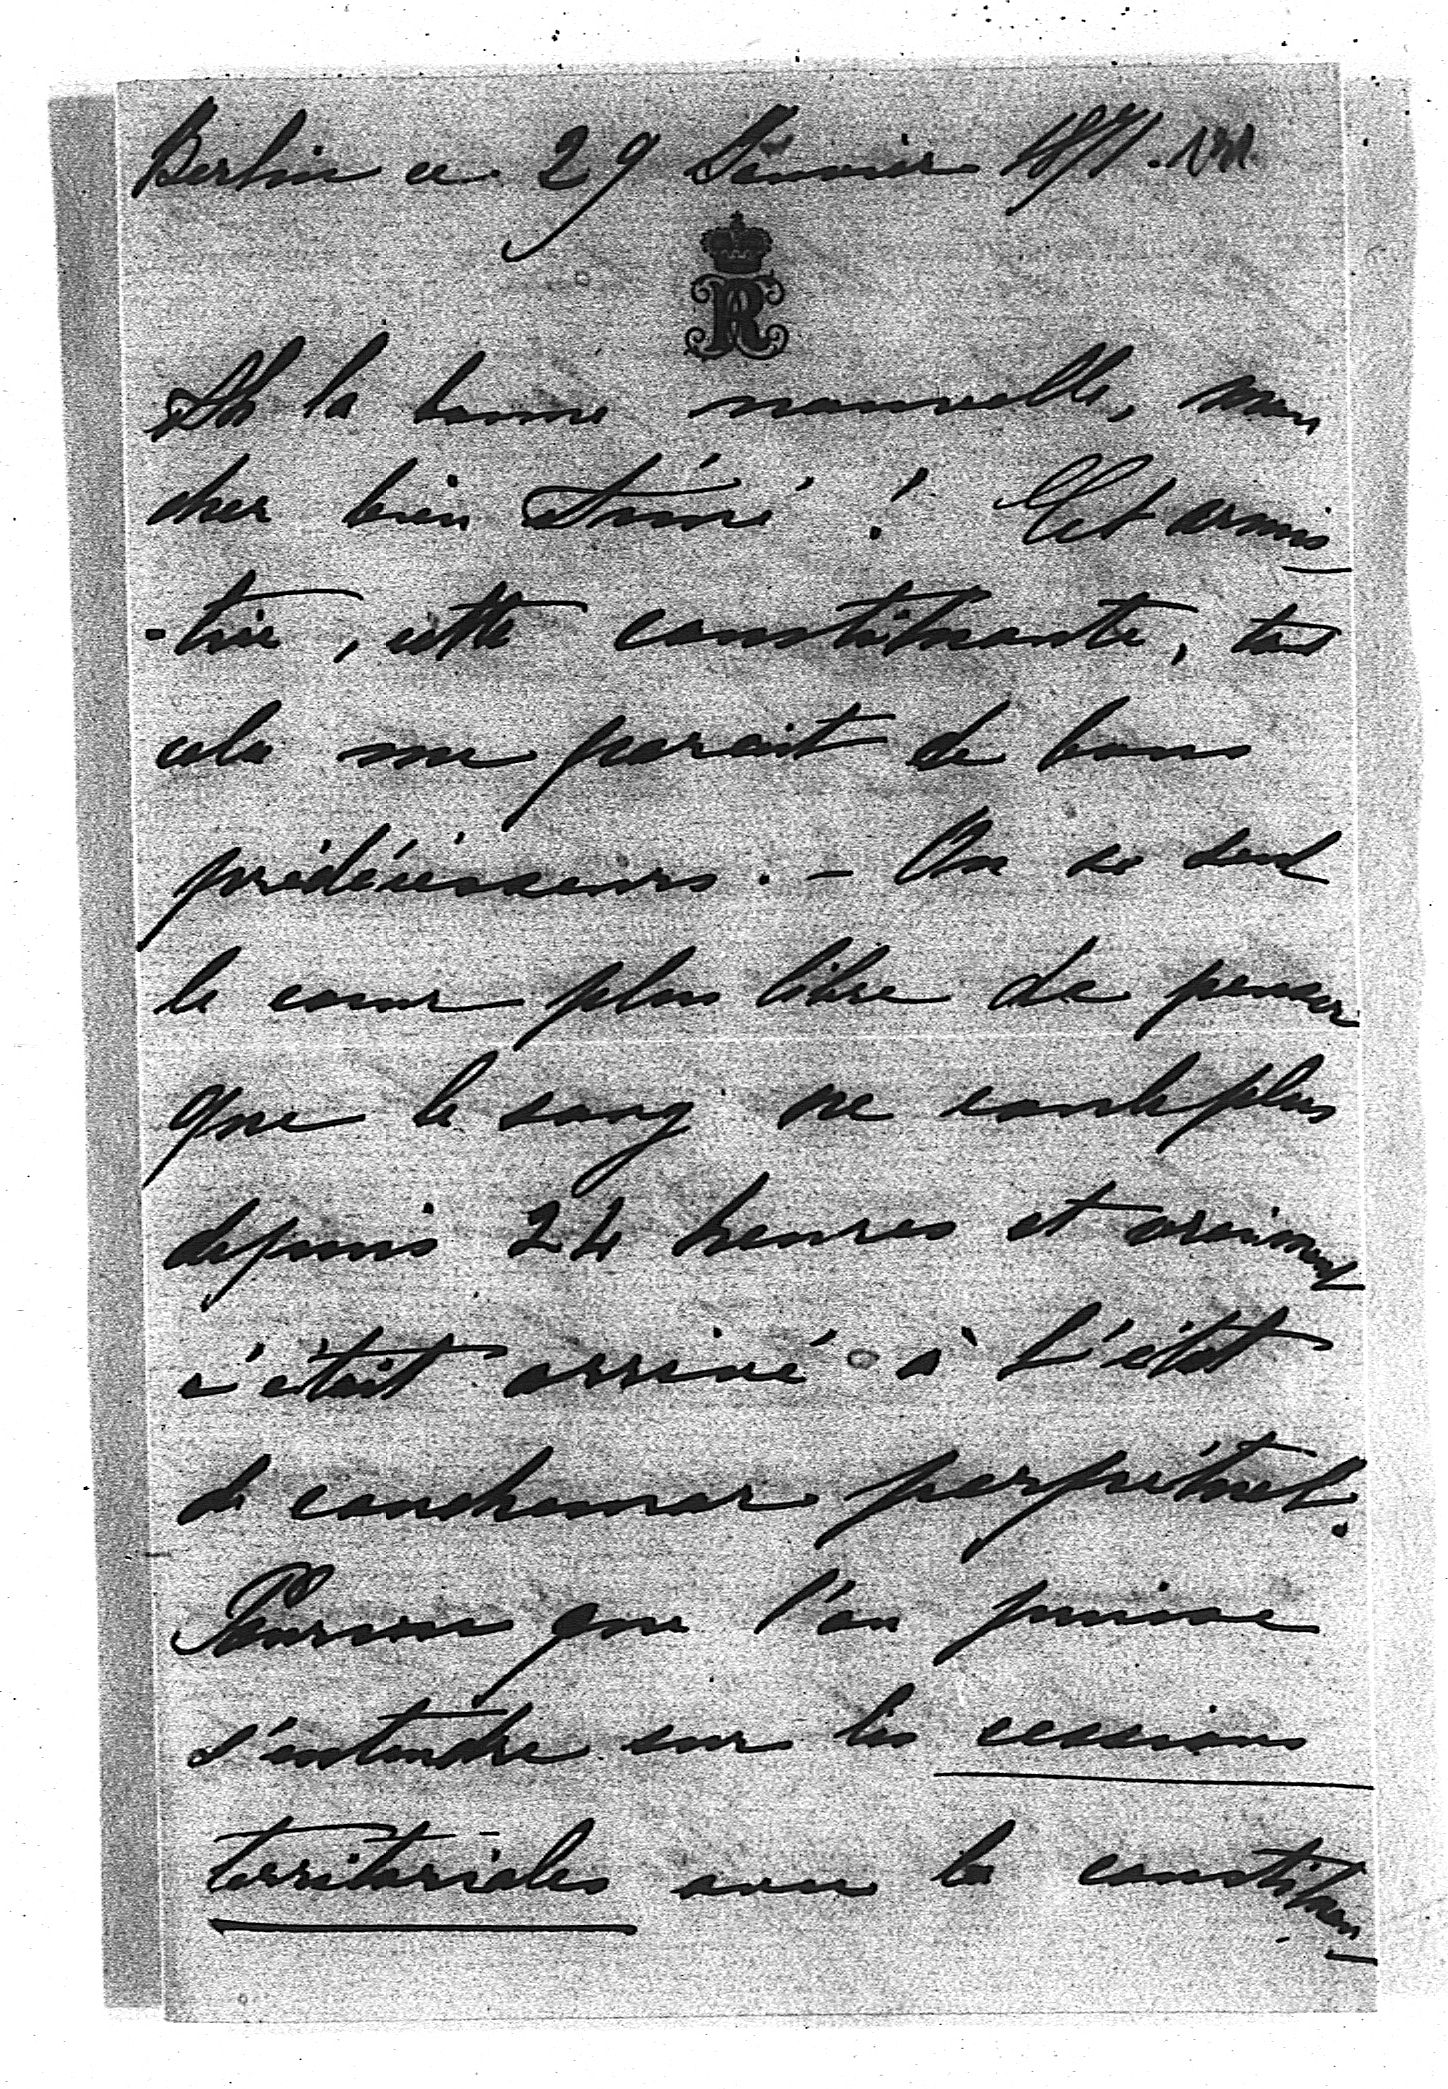 Berlin ce 29 Janvier 1871.
Ah la bonne nouvelle, mon
cher bien Aimé ! Cet armis
-tice, cette constituante, tout
cela me parait de bons
prédécésseurs. - On se sent
le coeur plus libre de penser
que le sang ne coule plus
depuis 24 heures et vraiment
c'était arrivé à l'état
de cauchemar perpétuel.
Pourvu que l'on puisse
s'entendre sur les cessions
territoriales avec la constituan